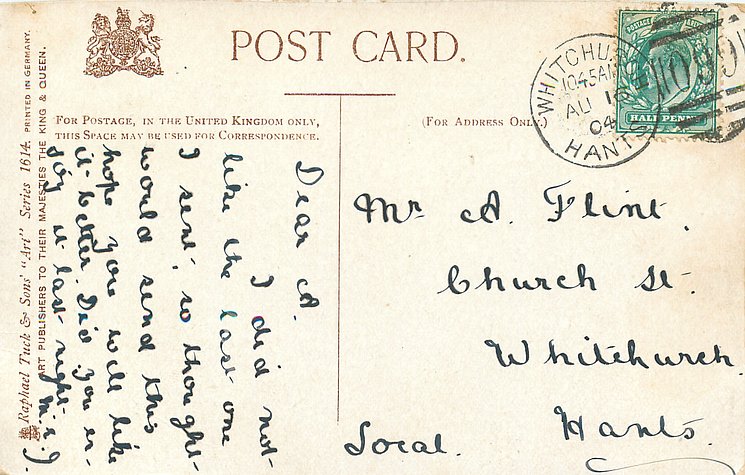 POST CARD.
FOR POSTAGE, IN THE UNITED KINGDOM ONLY,
THIS SPACE MAY BE USED FOR CORRESPONDENCE.
(FOR ADDRESS ONLY.)
Raphael Tuck & Sons' "Art" Series 1614. PRINTED IN GERMANY.
ART PUBLISHERS TO THEIR MAJESTIES THE KING & QUEEN.
Dear A.
I did not
like the last one
I sent, so thought
would send this
hope you will like
it better. Did you en-
joy it last night
Mr A. Flint.
Church St.
Whitchurch
Hants.
Local.
WHITCHU
10 45 AM
AU
04
HANTS
POSTAGE
HALF PENNY